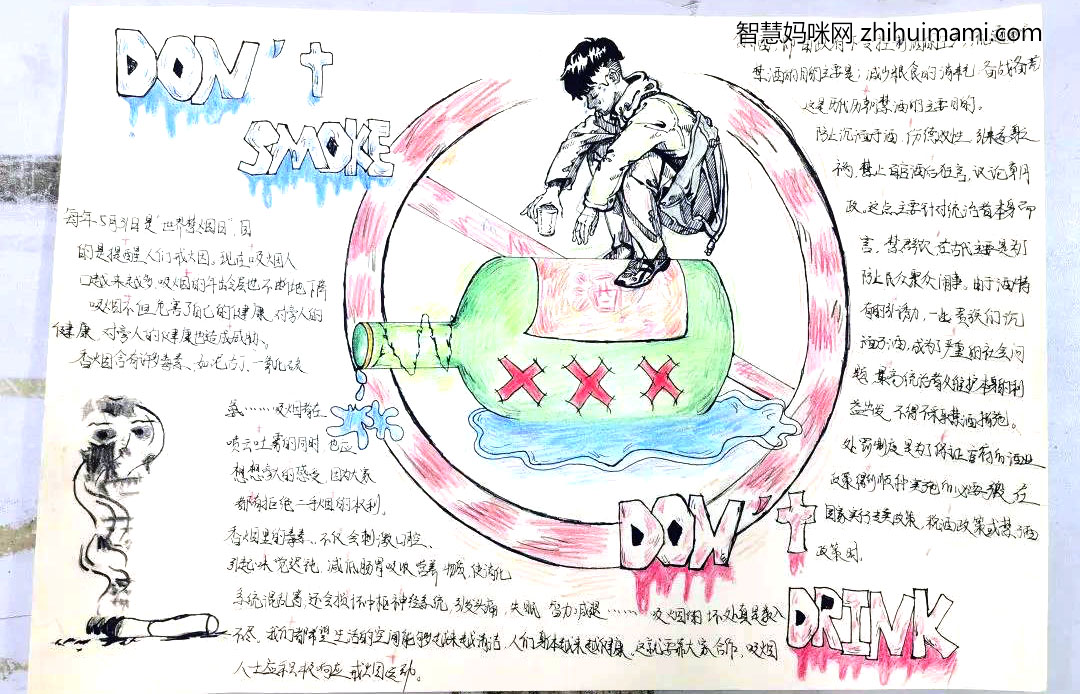 智慧妈咪网 zhihuimami.com
DON't
SMOKE
每年5月31日是"世界禁烟日",目
的是提醒人们戒烟。现在吸烟人
口越来越多,吸烟的年龄层也不断地下降
吸烟不但危害了自己的健康,对旁人的
健康,对旁人的健康也造成威胁。
香烟含有许多毒素、如尼古丁、一氧化碳
盎……吸烟者在
喷云吐雾的同时 也应
想想旁人的感受 因为大家
都有拒绝二手烟的权利。
香烟里的毒素、不仅会刺激口腔、
引起味觉迟钝,减低肠胃吸收营养物质,使消化
系统混乱着,还会损坏中枢神经系统,引发头痛,失眠,智力减退……吸烟的坏处真是数入
不尽,我们都希望生活的空间能够越来越清洁,人们身体越来越健康,这就要靠大家合作,吸烟
人士应积极响应戒烟运动。
禁酒的目的主要是:减少粮食的消耗,备战备荒
这是历代历朝禁酒的主要目的。
防止沉湎于酒,伤德败性,引来杀身之
祸,禁止官酒后狂言,议论朝
政。这点主要针对统治者本身而
言,禁群饮 在古代主要是为了
防止民众聚众闹事,由于酒精
有的引诱力,一些贵族们沉
湎于酒,成为了严重的社会问
题,最高统治者从维护本身的利
益出发,不得不采取禁酒措施。
处罚制度是为了保证官府的酒业
政策得顺利实施的必要手段,在
国家实行专卖政策,税酒政策或禁酒
政策时,
DON't
DRINK